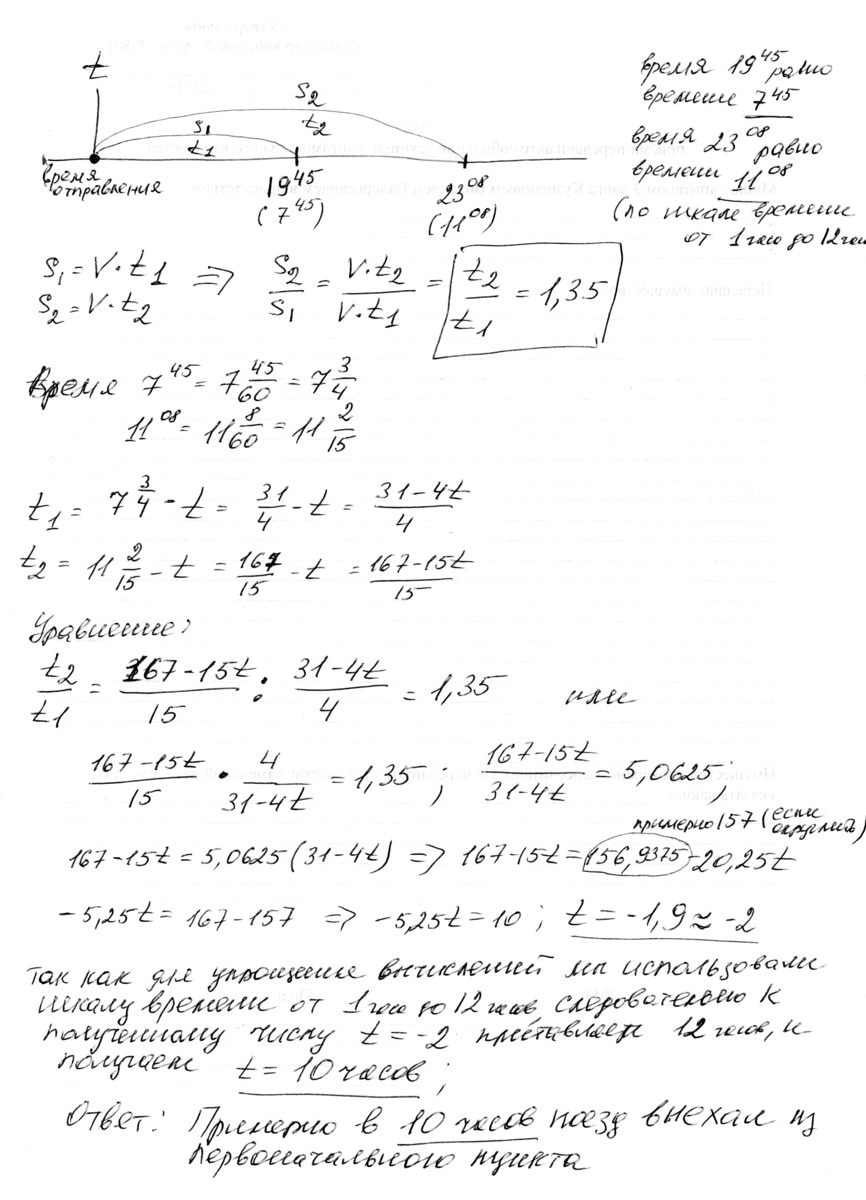 t
S₂
t₂
S₁
t₁
время отправления
19⁴⁵
(7⁴⁵)
23⁰⁸
(11⁰⁸)
время 19⁴⁵ равно
времени 7⁴⁵
время 23⁰⁸ равно
времени 11⁰⁸
(по шкале времени
от 1 часа до 12 часов
S₁ = V · t₁
S₂ = V · t₂
=> S₂/S₁ = V · t₂/V · t₁ = t₂/t₁ = 1,35
Время 7⁴⁵ = 7 45/60 = 7 3/4
11⁰⁸ = 11 8/60 = 11 2/15
t₁ = 7 3/4 - t = 31/4 - t = 31-4t/4
t₂ = 11 2/15 - t = 167/15 - t = 167-15t/15
Уравнение:
t₂/t₁ = 167-15t/15 : 31-4t/4 = 1,35 или
167-15t/15 · 4/31-4t = 1,35; 167-15t/31-4t = 5,0625;
примерно 157 (если округлить)
167-15t = 5,0625(31-4t) => 167-15t = 156,9375-20,25t
-5,25t = 167-157 => -5,25t = 10; t = -1,9 ≈ -2
так как для упрощения вычислений мы использовали
шкалу времени от 1 часа до 12 часов, следовательно к
полученному числу t = -2 12 часов, и
получаем t = 10 часов;
Ответ: Примерно в 10 часов поезд выехал из
первоначального пункта